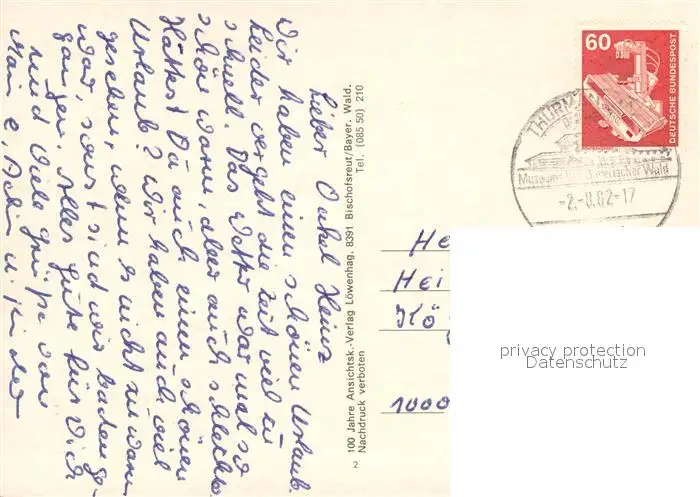 Lieber Onkel Heinz
Wir haben einen schönen Urlaub.
Leider vergeht die Zeit viel zu
schnell. Das Wetter war mal so
schön warm, aber auch schlecht.
Hattest Du auch einen schönen
Urlaub? Wir haben auch viel
gesehen, wenn es nicht zu warm
war, sonst sind wir baden ge-
gangen. Alles Gute für Dich
und viele Grüße von
100 Jahre Ansichtsk.-Verlag Löwenhag, 8391 Bischofsreut/Bayer. Wald.
Nachdruck verboten Tel. (085 50) 210
2
60
DEUTSCHE BUNDESPOST
THURM
Museum Bayerischer Wald
-2.-8.82-17
He
Hei
Kö
1000
privacy protection
Datenschutz